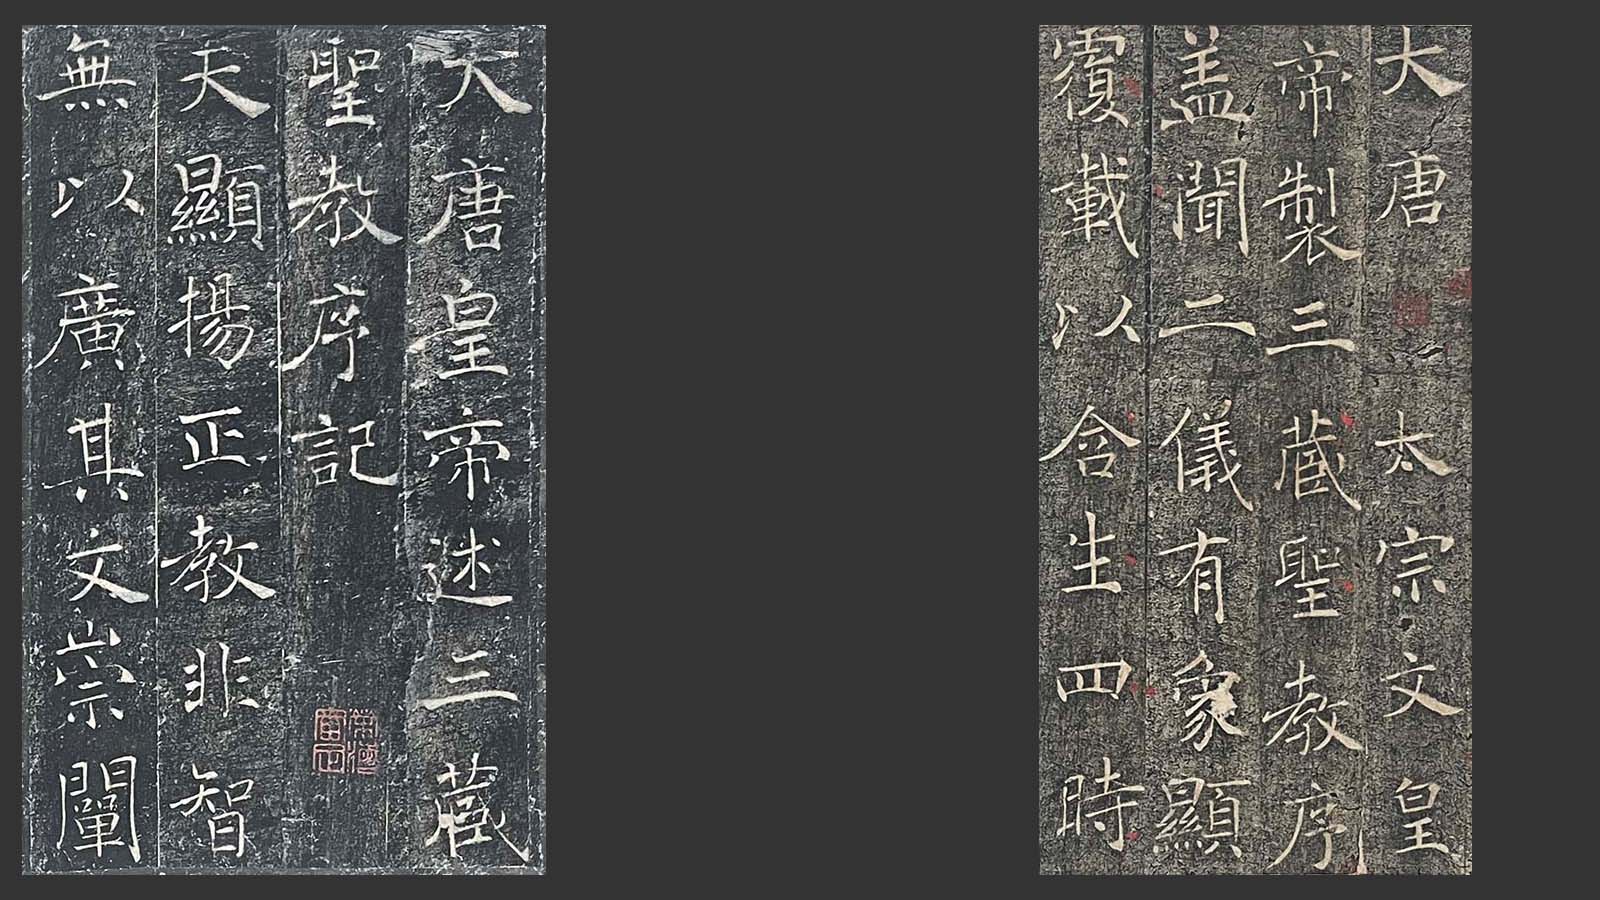 大唐皇帝述三藏
聖教序記
天顯揚正教非智
無以廣其文崇闡
大唐太宗文皇
帝製三藏聖教序
盖聞二儀有象顯
覆載以含生四時